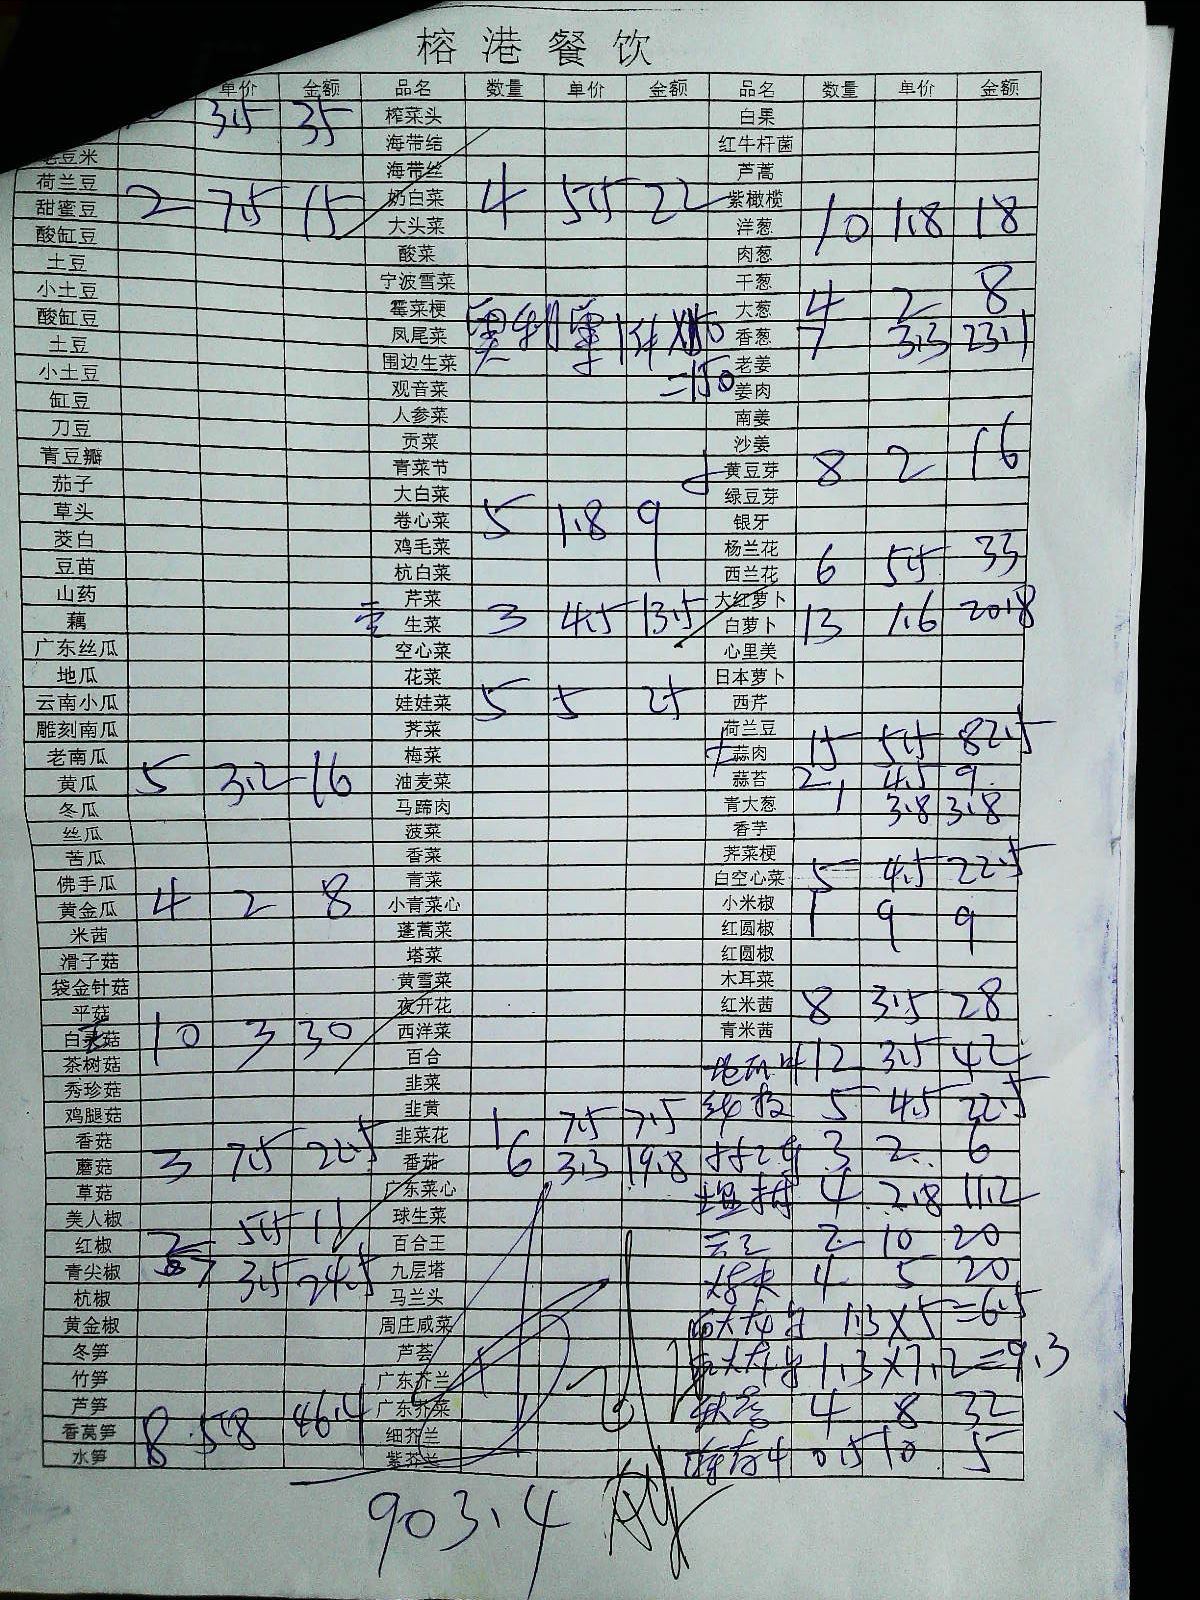 榕港餐饮
单价 金额 品名 数量 单价 金额 品名 数量 单价 金额
3.5 35 榨菜头 白果
海带结 红牛杆菌
豆米 海带丝 芦蒿
荷兰豆 2 7.5 15 奶白菜 4 5.5 22 紫橄榄
甜蜜豆 大头菜 洋葱 10 1.8 18
酸缸豆 酸菜 肉葱
土豆 宁波雪菜 干葱
小土豆 霉菜梗 大葱 4 2 8
酸缸豆 凤尾菜 香葱 7 3.3 23.1
土豆 围边生菜 =150 老姜
小土豆 观音菜 姜肉
缸豆 人参菜 南姜
刀豆 贡菜 沙姜
青豆瓣 青菜节 黄豆芽 8 2 16
茄子 大白菜 绿豆芽
草头 卷心菜 5 1.8 9 银牙
茭白 鸡毛菜 杨兰花
豆苗 杭白菜 西兰花 6 5.5 33
山药 芹菜 大红萝卜
藕 生菜 3 4.5 13.5 白萝卜 13 1.6 20.8
广东丝瓜 空心菜 心里美
地瓜 花菜 日本萝卜
云南小瓜 娃娃菜 5 5 25 西芹
雕刻南瓜 荠菜 荷兰豆
老南瓜 梅菜 蒜肉 15 5.5 82.5
黄瓜 5 3.2 16 油麦菜 蒜苔 2 4.5 9
冬瓜 马蹄肉 青大葱 1 3.8 3.8
丝瓜 菠菜 香芋
苦瓜 香菜 荠菜梗
佛手瓜 青菜 白空心菜 5 4.5 22.5
黄金瓜 4 2 8 小青菜心 小米椒 1 9 9
米茜 蓬蒿菜 红圆椒
滑子菇 塔菜 红圆椒
袋金针菇 黄雪菜 木耳菜
平菇 夜开花 红米茜 8 3.5 28
白灵菇 10 3 30 西洋菜 青米茜
茶树菇 百合 12 3.5 42
秀珍菇 韭菜
鸡腿菇 韭黄 1 7.5 7.5 5 4.5 22.5
香菇 韭菜花 3 2 6
蘑菇 3 7.5 22.5 番茄 6 3.3 19.8
草菇 广东菜心 4 2.8 11.2
美人椒 球生菜
红椒 2 5.5 11 百合王 2 10 20
青尖椒 7 3.5 24.5 九层塔 4 5 20
杭椒 马兰头
黄金椒 周庄咸菜 1.3×5=6.5
冬笋 芦荟 1.3×7.2=9.3
竹笋 广东芥兰
芦笋 广东芥菜 4 8 32
香莴笋 8 5.8 46.4 细芥兰
水笋 紫芥兰 0.5 10 5
903.4